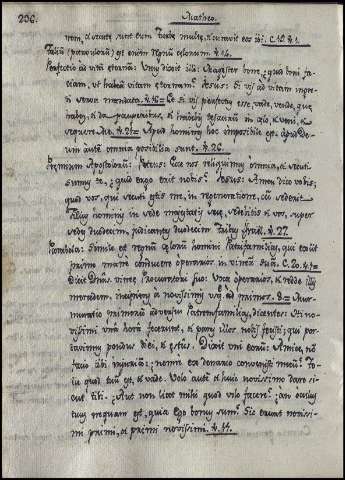 236. Matheo.
rem, et secutae sunt eum turbae multae, et curavit eos ibi. C. 19. ℣. 1.
Talium (parvulorum) est enim regnum caelorum ℣. 14.
Perfectio ad vitã eternam: Unus dixit illi: Magister bone, quid boni fa-
ciam, ut habeã vitam eternam? Jesus: Si vis ad vitam ingre-
di serva mandata. ℣. 16= Et si vis perfectus esse vade, vende, quae
habes, et da pauperibus, et habebis thesaurum in caelo, et veni, et
sequere Me. ℣. 21= Apud homines hoc impossibile est: apud De-
um autẽ omnia possibilia sunt. ℣. 26.
Premium Apostolorũ: Petrus: Ecce nos reliquimus omnia, et secuti
sumus te, quid ergo erit nobis? Jesus: Amen dico vobis,
quod vos, qui secuti estis me, in regeneratione, cũ sederit
filius hominis in sede majestatis suae, sedebitis et vos, super
sedes duodecim, judicantes duodecim tribus Israel. ℣. 27.
Parabola: Simile est regnũ caelorũ homini Patrifamilias, qui exiit
primo mane conducere operarios in vineã suã. C. 20. ℣. 1=
Dicit Dñus vineae Procuratori suo: Voca operarios, et redde illis
mercedem, incipiens a novissimis usq ad primos. 8= Mur-
murabant primi adversus Patremfamilias, dicentes: Hi no-
vissimi una hora fecerunt, et pares illos nobis fecisti, qui por-
tavimus pondus diei, et estus. Dixit uni eorũ: Amice, nõ
facio tibi injuriam: nonne ex denario convenisti mecũ? To-
lle quod tuũ est, et vade. Volo autẽ et huic novissimo dare si-
cut tibi. ¿Aut non licet mihi quod volo facere? ¿an oculus
tuus nequam est, quia Ego bonus sum? Sic erunt novissi-
mi primi, et primi novissimi. ℣. 14.